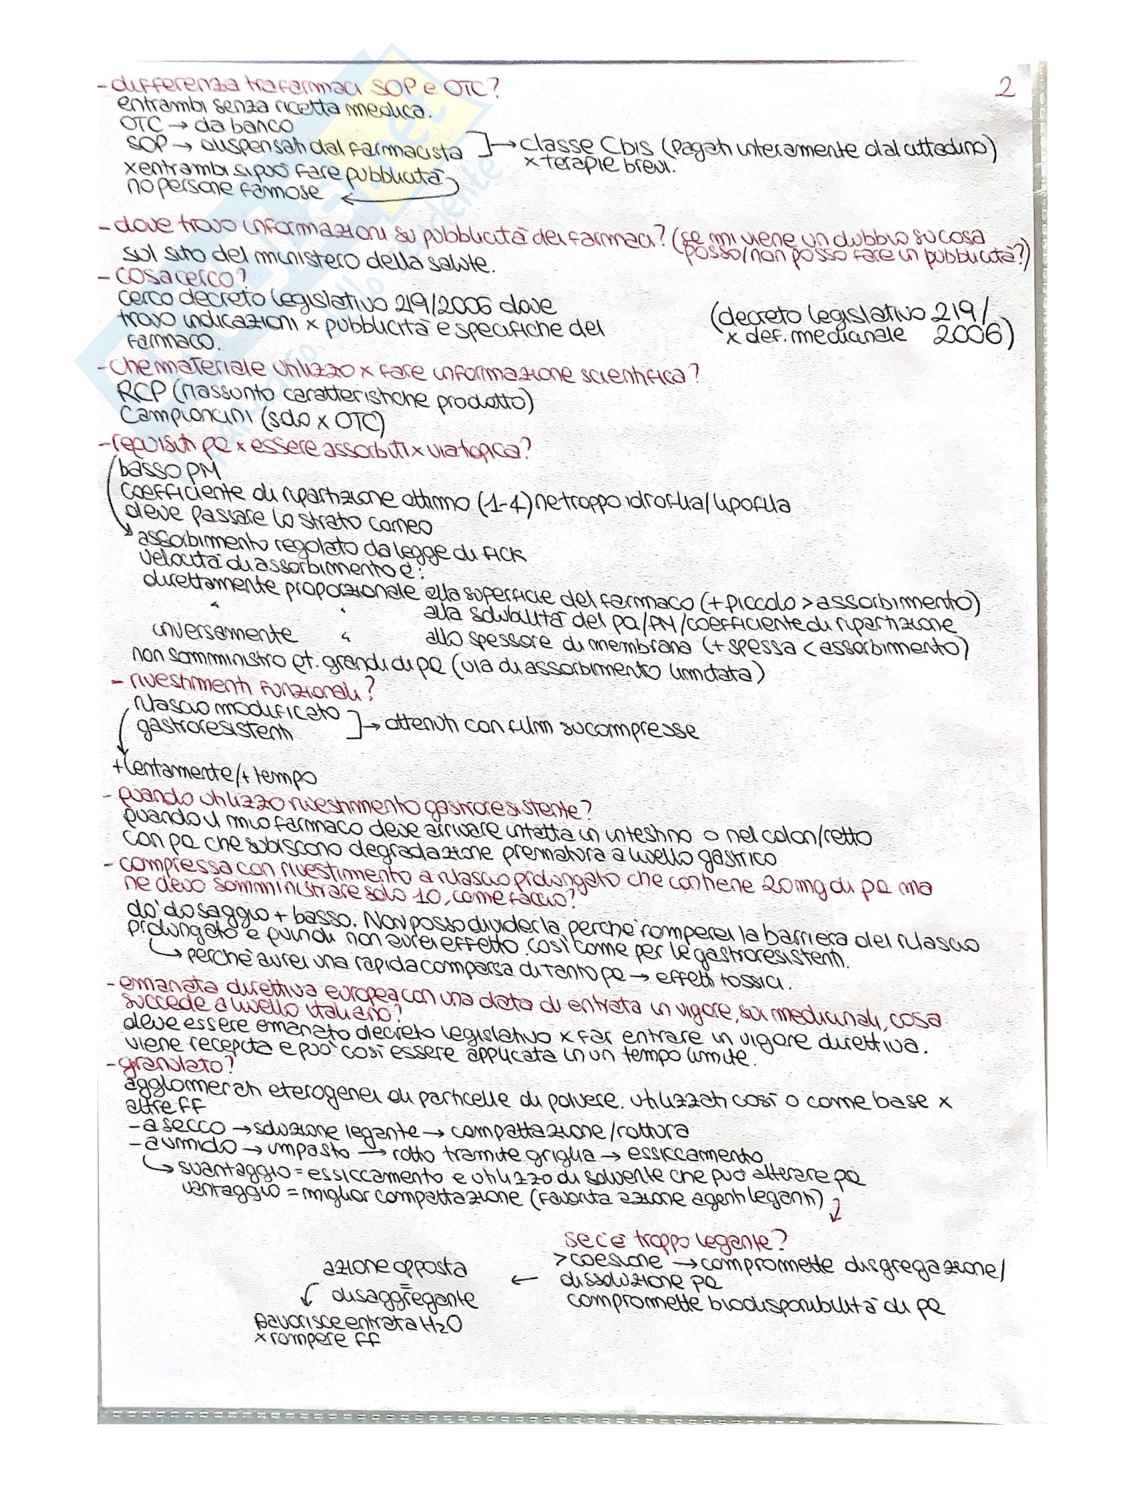 - differenza tra farmaci SOP e OTC?
2
entrambi senza ricetta medica.
OTC → da banco
SOP → dispensati dal farmacista ] → classe Cbis (pagati interamente dal cittadino)
x terapie brevi.
x entrambi si può fare pubblicità
no persone famose ←
- dove trovo informazioni su pubblicità dei farmaci? (se mi viene un dubbio su cosa
posso/non posso fare in pubblicità?)
sul sito del ministero della salute.
- cosa cerco?
cerco decreto legislativo 219/2006 dove
trovo indicazioni x pubblicità e specifiche del
farmaco.
(decreto legislativo 219/
x def. medicinale 2006)
- che materiale utilizzo x fare informazione scientifica?
RCP (riassunto caratteristiche prodotto)
Campioncini (solo x OTC)
- requisiti pa x essere assorbiti x via topica?
basso PM
coefficiente di ripartizione ottimo (1-4) ne troppo idrofila/lipofila
deve passare lo strato corneo
→ assorbimento regolato da legge di FICK
velocità di assorbimento è:
direttamente proporzionale alla superficie del farmaco (+ piccolo > assorbimento)
" " alla solubilità del pa/PM/coefficiente di ripartizione
inversamente " allo spessore di membrana (+ spessa < assorbimento)
non somministro qt. grandi di pa (via di assorbimento limitata)
- rivestimenti funzionali?
rilascio modificato
gastroresistenti ] → ottenuti con film su compresse
+ lentamente/+ tempo
- quando utilizzo rivestimento gastroresistente?
quando il mio farmaco deve arrivare intatta in intestino o nel colon/retto
con pa che subiscono degradazione prematura a livello gastrico
- compressa con rivestimento a rilascio prolungato che contiene 20mg di pa ma
ne devo somministrare solo 10, come faccio?
do' dosaggio + basso. Non posso dividerla perchè romperei la barriera del rilascio
prolungato e quindi non avrei effetto. così come per le gastroresistenti.
→ perchè avrei una rapida comparsa di tanto pa → effetti tossici.
- emanata direttiva europea con una data di entrata in vigore, sui medicinali, cosa
succede a livello italiano?
deve essere emanato decreto legislativo x far entrare in vigore direttiva.
viene recepita e può così essere applicata in un tempo limite.
- granulato?
agglomerati eterogenei di particelle di polvere. utilizzati così o come base x
altre FF
- a secco → soluzione legante → compattazione/rottura
- a umido → impasto → rotto tramite griglia → essiccamento
→ svantaggio = essiccamento e utilizzo di solvente che può alterare pa
vantaggio = miglior compattazione (favorita azione agenti leganti)
se c'è troppo legante?
> coesione → compromette disgregazione/
dissoluzione pa
compromette biodisponibilità di pa
← azione opposta
=
disaggregante
favorisce entrata H2O
x rompere FF